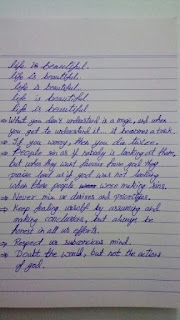 life is beautiful.
life is beautiful.
life is beautiful.
life is beautiful
life is beautiful
⇒ What you don't understand is a magic, but when
you get to understand it... it becomes a trick.
⇒ If you worry, then you die twice.
⇒ People sin as if nobody is looking at them,
but when they want favour from god they
praise lord as if god was not looking
when these people were making sins.
⇒ Never mix ur desires and priorities.
⇒ Keep fooling urself by assuming and
making conclusions, but always be
honest in all ur efforts.
⇒ Respect ur subconscious mind.
⇒ Doubt the world, but not the actions
of god.